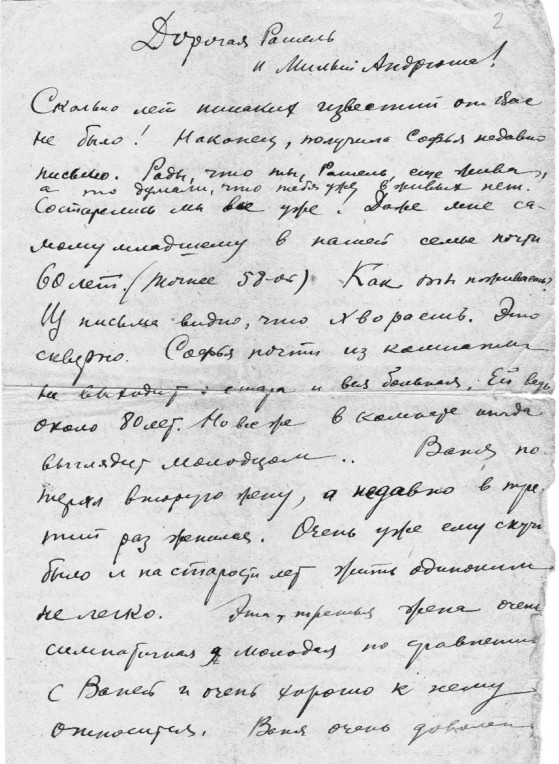 2
Дорогая Рашель
и Милый Андрюша!
Сколько лет никаких известий от Вас
не было! Наконец, получила Софья недавно
письмо. Рады, что ты, Рашель, еще жива,
а то думали, что тебя уже в живых нет.
Состарелись мы все уже! Даже мне са-
мому младшему в нашей семье почти
60 лет. (точнее 58-ой) Как ты поживаешь?
Из письма видно, что хвораешь. Это
скверно. Софья почти из комнаты
не выходит: стара и вся больная. Ей ведь
около 80 лет. Но все же в комнате иногда
выглядит молодцом.. Ваня по-
терял вторую жену, а недавно в тре-
тий раз женился. Очень уже ему скучн
было и на старости лет жить одиноким
не легко. Эта, третья жена очень
симпатичная и молодая по сравнению
с Ваней и очень хорошо к нему
относится. Ваня очень доволен